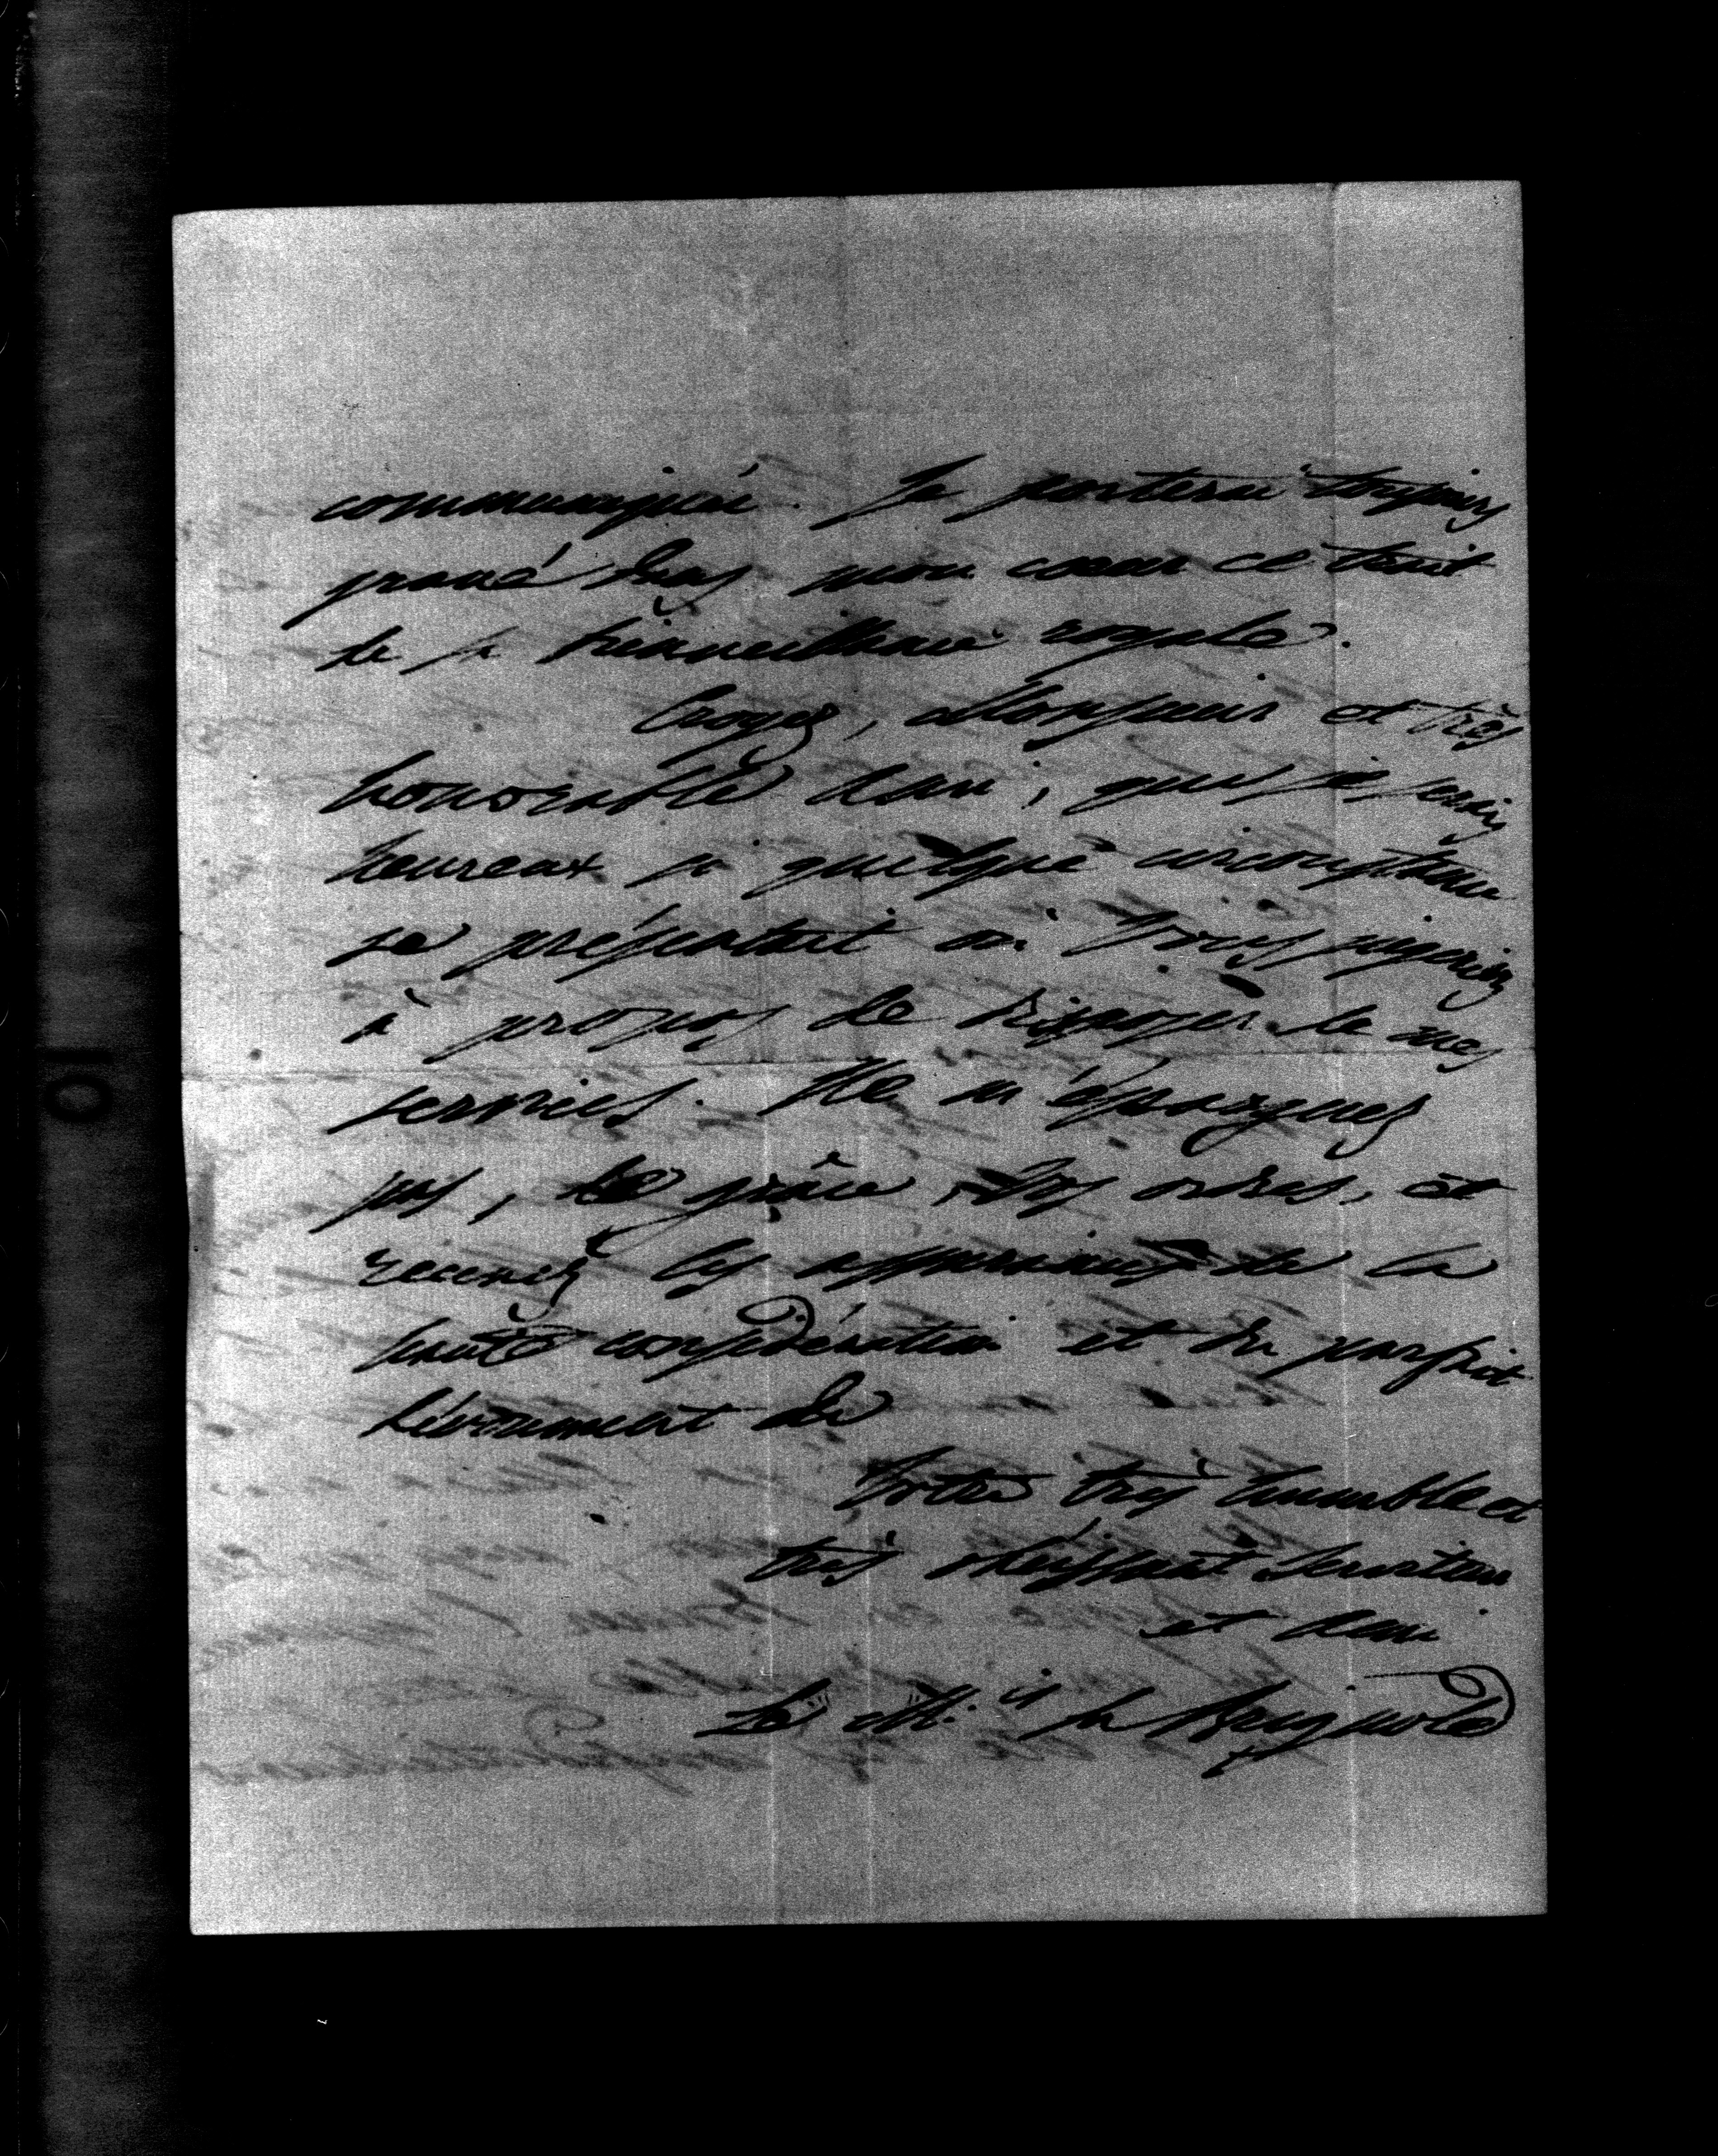 communiqué. Je porterai toujours
gravé dans mon cœur ce trait
de sa bienveillance royale.
Croyez, Monsieur et très
honorable Ami, que je serai
heureux si quelque circonstance
se présentait où Vous jugeriez
à propos de disposer de mes
services. Ne m'épargnez
pas, de grâce, Vos ordres, et
recevez les assurances de la
haute considération et du parfait
dévouement de
Votre très humble et
très obéissant Serviteur
et Ami
Le M. is de Brignole